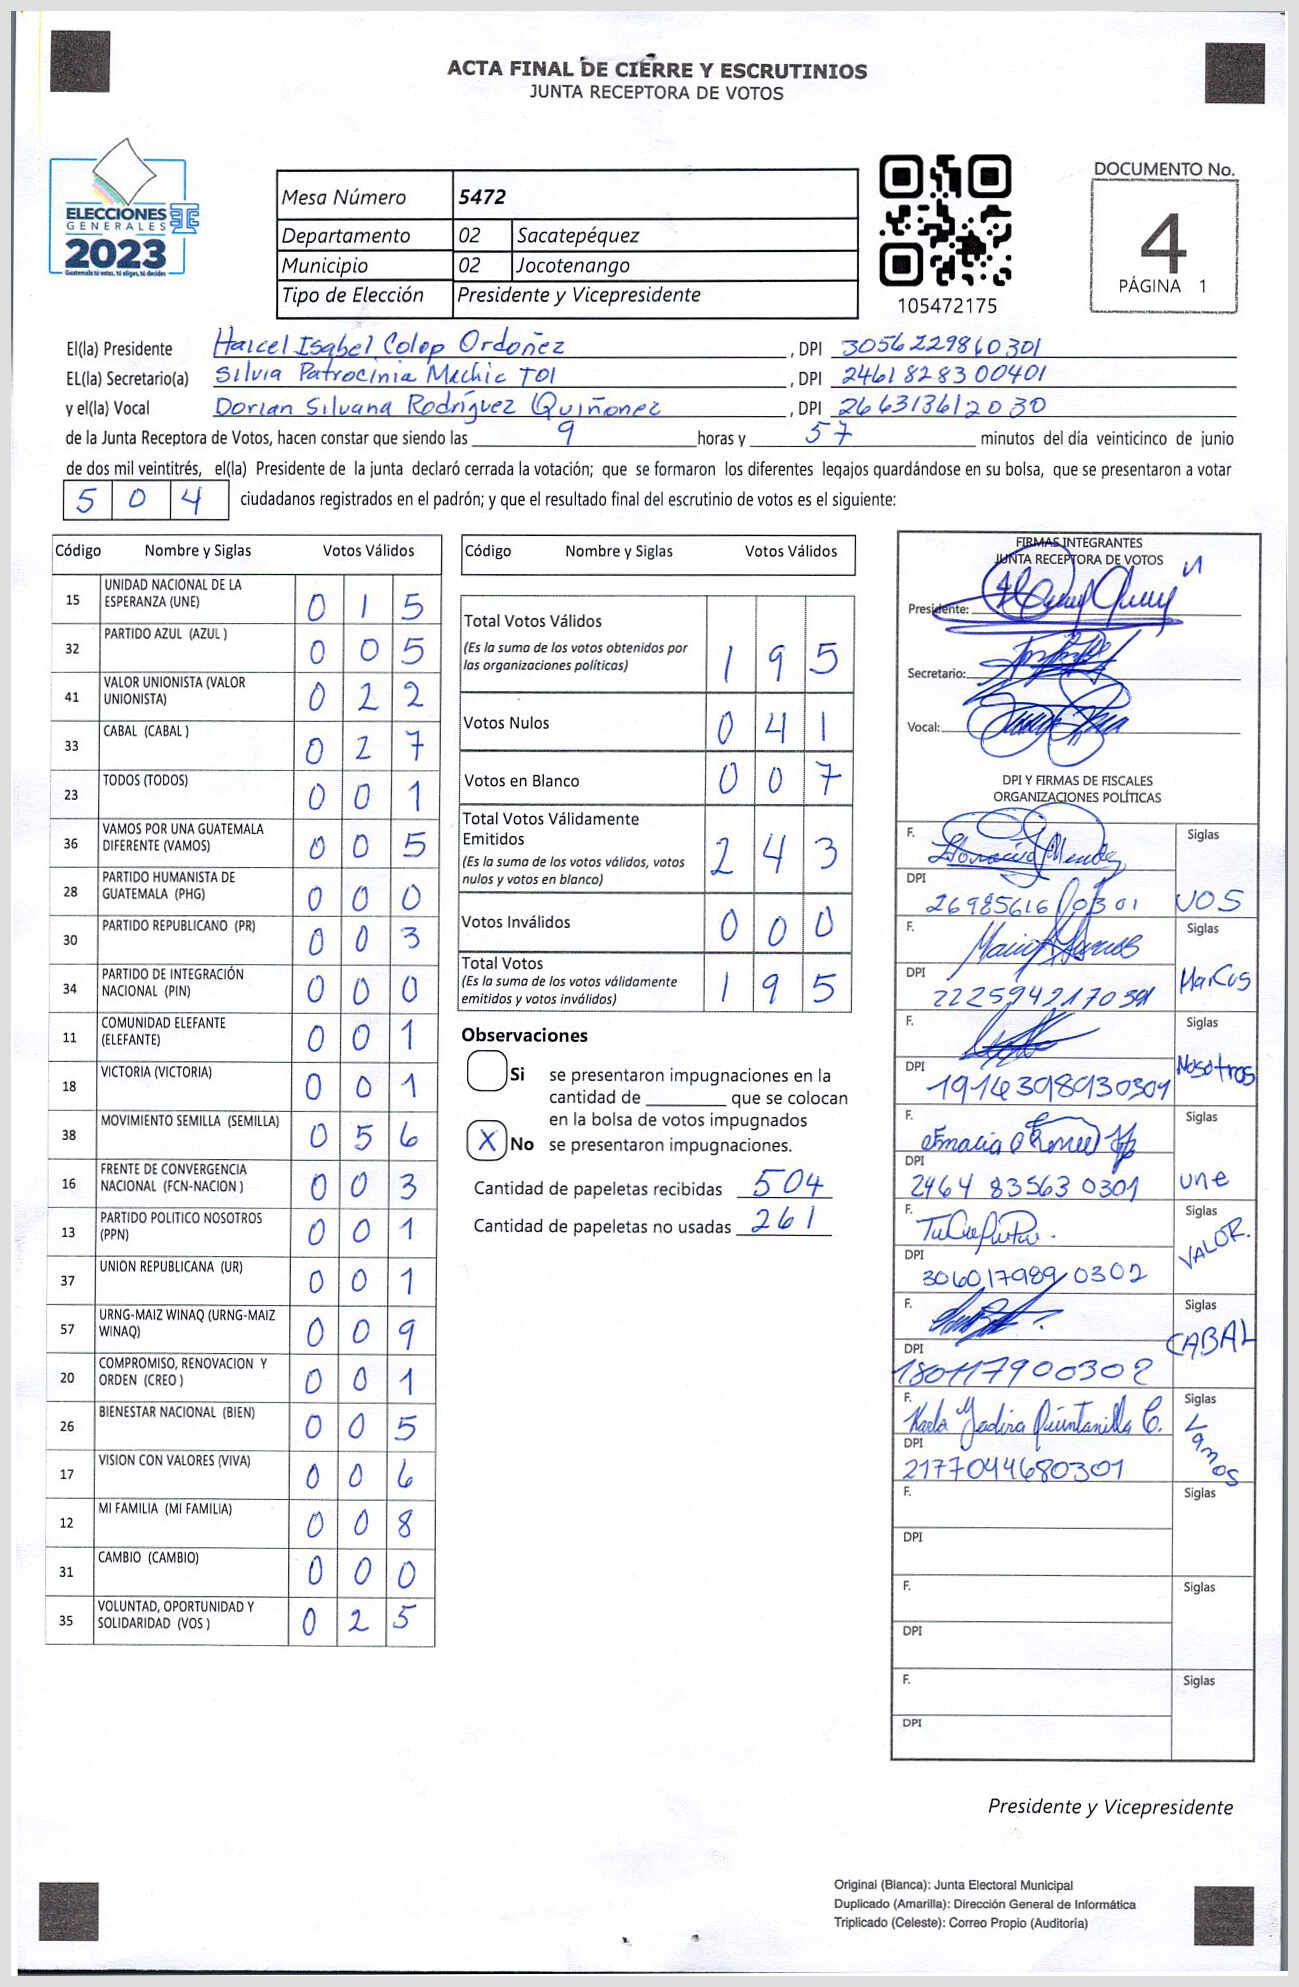 ACTA FINAL DE CIERRE Y ESCRUTINIOS
JUNTA RECEPTORA DE VOTOS
ELECCIONES
GENERALES
2023
Guatemala tú votas, tú eliges, tú decides
Mesa Número 5472
Departamento 02 Sacatepéquez
Municipio 02 Jocotenango
Tipo de Elección Presidente y Vicepresidente
105472175
DOCUMENTO No.
4
PÁGINA 1
El(la) Presidente Haicel Isabel Colop Ordoñez , DPI 3056229860301
EL(la) Secretario(a) Silvia Patrocinia Machic TOI , DPI 2461828300401
y el(la) Vocal Dorian Silvana Rodríguez Quiñonez , DPI 266313612030
de la Junta Receptora de Votos, hacen constar que siendo las 9 horas y 57 minutos del día veinticinco de junio
de dos mil veintitrés, el(la) Presidente de la junta declaró cerrada la votación; que se formaron los diferentes legajos guardándose en su bolsa, que se presentaron a votar
504 ciudadanos registrados en el padrón; y que el resultado final del escrutinio de votos es el siguiente:
Código Nombre y Siglas Votos Válidos
15 UNIDAD NACIONAL DE LA ESPERANZA (UNE) 0 1 5
32 PARTIDO AZUL (AZUL ) 0 0 5
41 VALOR UNIONISTA (VALOR UNIONISTA) 0 2 2
33 CABAL (CABAL ) 0 2 7
23 TODOS (TODOS) 0 0 1
36 VAMOS POR UNA GUATEMALA DIFERENTE (VAMOS) 0 0 5
28 PARTIDO HUMANISTA DE GUATEMALA (PHG) 0 0 0
30 PARTIDO REPUBLICANO (PR) 0 0 3
34 PARTIDO DE INTEGRACIÓN NACIONAL (PIN) 0 0 0
11 COMUNIDAD ELEFANTE (ELEFANTE) 0 0 1
18 VICTORIA (VICTORIA) 0 0 1
38 MOVIMIENTO SEMILLA (SEMILLA) 0 5 6
16 FRENTE DE CONVERGENCIA NACIONAL (FCN-NACION ) 0 0 3
13 PARTIDO POLITICO NOSOTROS (PPN) 0 0 1
37 UNION REPUBLICANA (UR) 0 0 1
57 URNG-MAIZ WINAQ (URNG-MAIZ WINAQ) 0 0 9
20 COMPROMISO, RENOVACION Y ORDEN (CREO ) 0 0 1
26 BIENESTAR NACIONAL (BIEN) 0 0 5
17 VISION CON VALORES (VIVA) 0 0 6
12 MI FAMILIA (MI FAMILIA) 0 0 8
31 CAMBIO (CAMBIO) 0 0 0
35 VOLUNTAD, OPORTUNIDAD Y SOLIDARIDAD (VOS ) 0 2 5
Código Nombre y Siglas Votos Válidos
Total Votos Válidos 1 9 5
(Es la suma de los votos obtenidos por
las organizaciones políticas)
Votos Nulos 0 4 1
Votos en Blanco 0 0 7
Total Votos Válidamente
Emitidos 2 4 3
(Es la suma de los votos válidos, votos
nulos y votos en blanco)
Votos Inválidos 0 0 0
Total Votos 1 9 5
(Es la suma de los votos válidamente
emitidos y votos inválidos)
Observaciones
Si se presentaron impugnaciones en la
cantidad de ________ que se colocan
en la bolsa de votos impugnados
X No se presentaron impugnaciones.
Cantidad de papeletas recibidas 504
Cantidad de papeletas no usadas 261
FIRMAS INTEGRANTES
JUNTA RECEPTORA DE VOTOS
Presidente:
Secretario:
Vocal:
DPI Y FIRMAS DE FISCALES
ORGANIZACIONES POLÍTICAS
F. Siglas
DPI 26985616 0301 VOS
F. Siglas
DPI MaRCos
F. Siglas
DPI 1914398930301 Nosotros
F. Siglas
DPI 2464 83563 0301 une
F. Siglas
DPI 3060179890302 VALOR.
F. Siglas
DPI 180117900302 CABAL
F. Karla Yadira Quintanilla C. Siglas
DPI 2177044680301 Vamos
F. Siglas
DPI
F. Siglas
DPI
F. Siglas
DPI
Presidente y Vicepresidente
Original (Blanca): Junta Electoral Municipal
Duplicado (Amarilla): Dirección General de Informática
Triplicado (Celeste): Correo Propio (Auditoría)